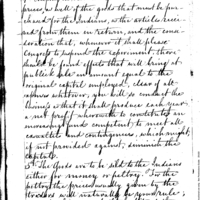 prices, a half of the goods that must be pur-
chased for the Indians, as the articles receiv-
ed from them in return, and the cons-
ideration that, whenever it shall please
Congress to suspend the experiment, there
should be fund effects that will bring at
publick sale an amount equal to the
original capital employed, clear of all
expense whatever, you will so conduct the
business that it shall produce each year
a net profit wherewith to constitute an
insurance fund competent to meet all
casualties and contingencies, which might,
if not provided against, diminish the
capital.
3d The Goods are to be sold to the Indians
either for money or peltry. In the
peltry the precautionary given by the
will naturally be your rule;